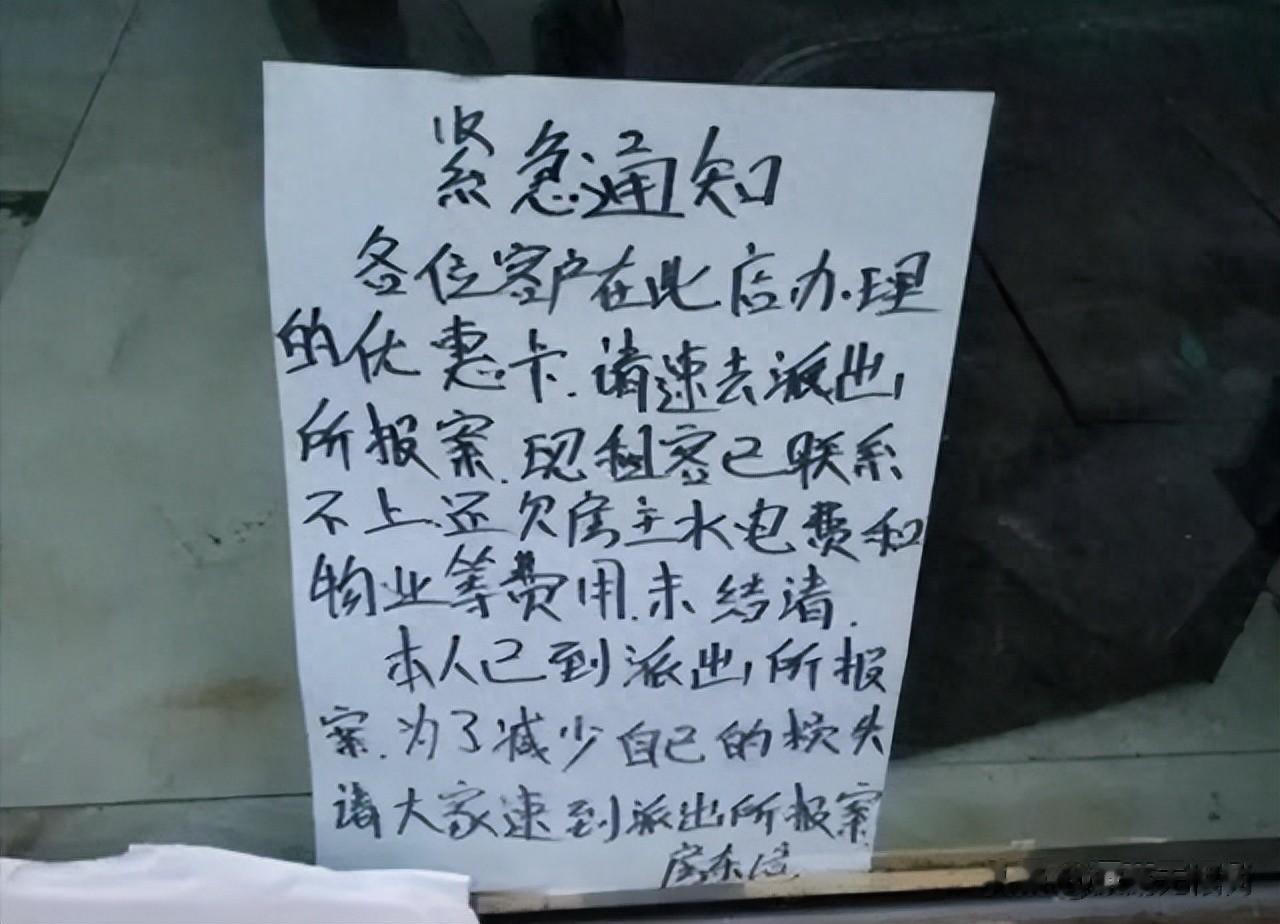 紧急通知
各位客户在此店办理
的优惠卡.请速去派出
所报案.现租客已联系
不上.还欠房主水电费和
物业等费用.未结清.
本人已到派出所报
案.为了减少自己的损失
请大家速到派出所报案
房东